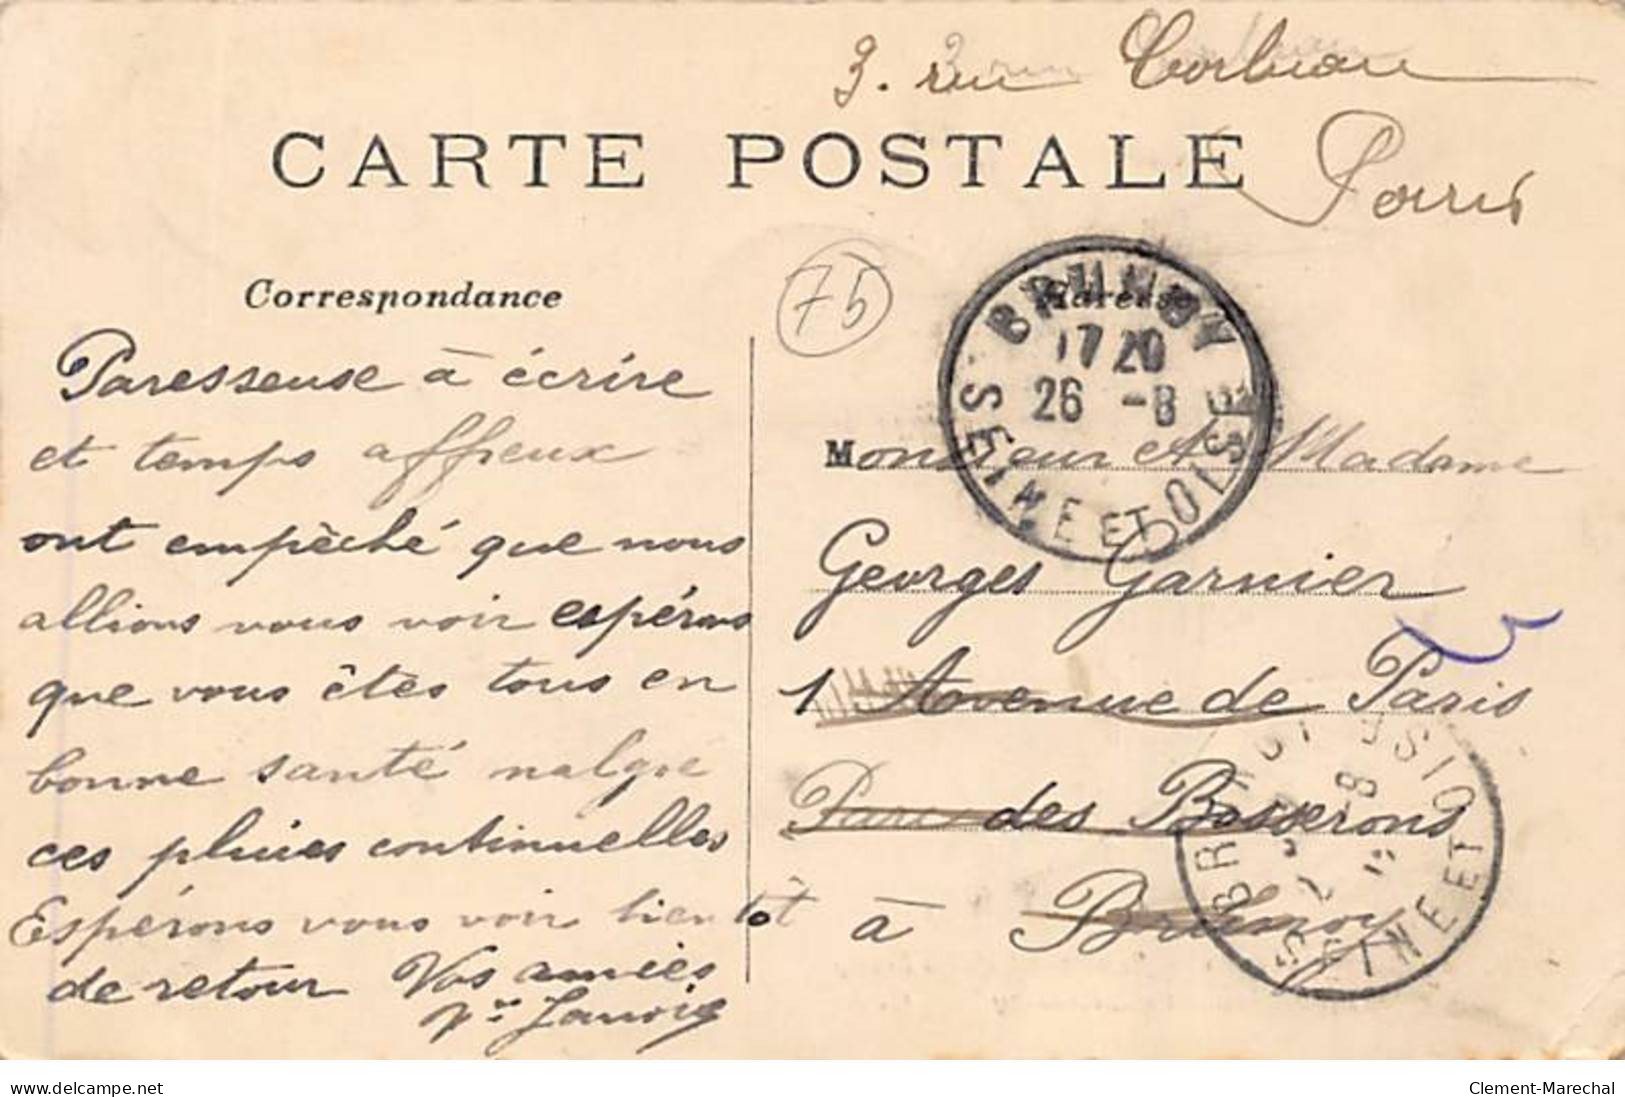 3. rue Corbeau
CARTE POSTALE
Paris
Correspondance
Adresse
75
BRUNOY
17 20
26 -8
SEINE ET OISE
Paresseuse à écrire
et temps affreux
ont empèché que nous
allions vous voir espérons
que vous êtes tous en
bonne santé malgre
ces pluies continuelles
Espérons vous voir bientôt
de retour Vos amies
Monsieur et Madame
Georges Garnier
1 Avenue de Paris
Parc des Bosserons
à Brunoy
BRUNOY
SEINE ET OISE
www.delcampe.net
Clement-Marechal